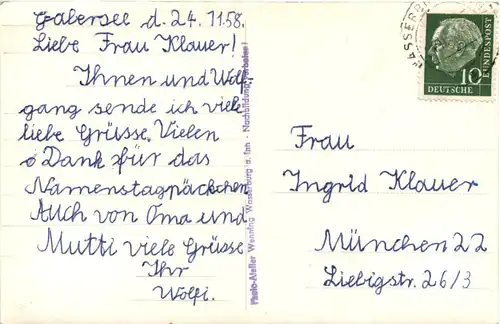 Gabersee d. 24. 11.58.
Liebe Frau Klauer!
Ihnen und Wolf,
gang sende ich viele
liebe Grüsse. Vielen
Dank für das
Namenstagpäckchen
Auch von Oma und
Mutti viele Grüsse
Ihr
Wolfi.
Photo-Atelier Wenning Wasserburg a. Inn - Nachbildung verboten!
10
DEUTSCHE
BUNDESPOST
Frau
Ingrid Klauer
München 22
Liebigstr. 26/3